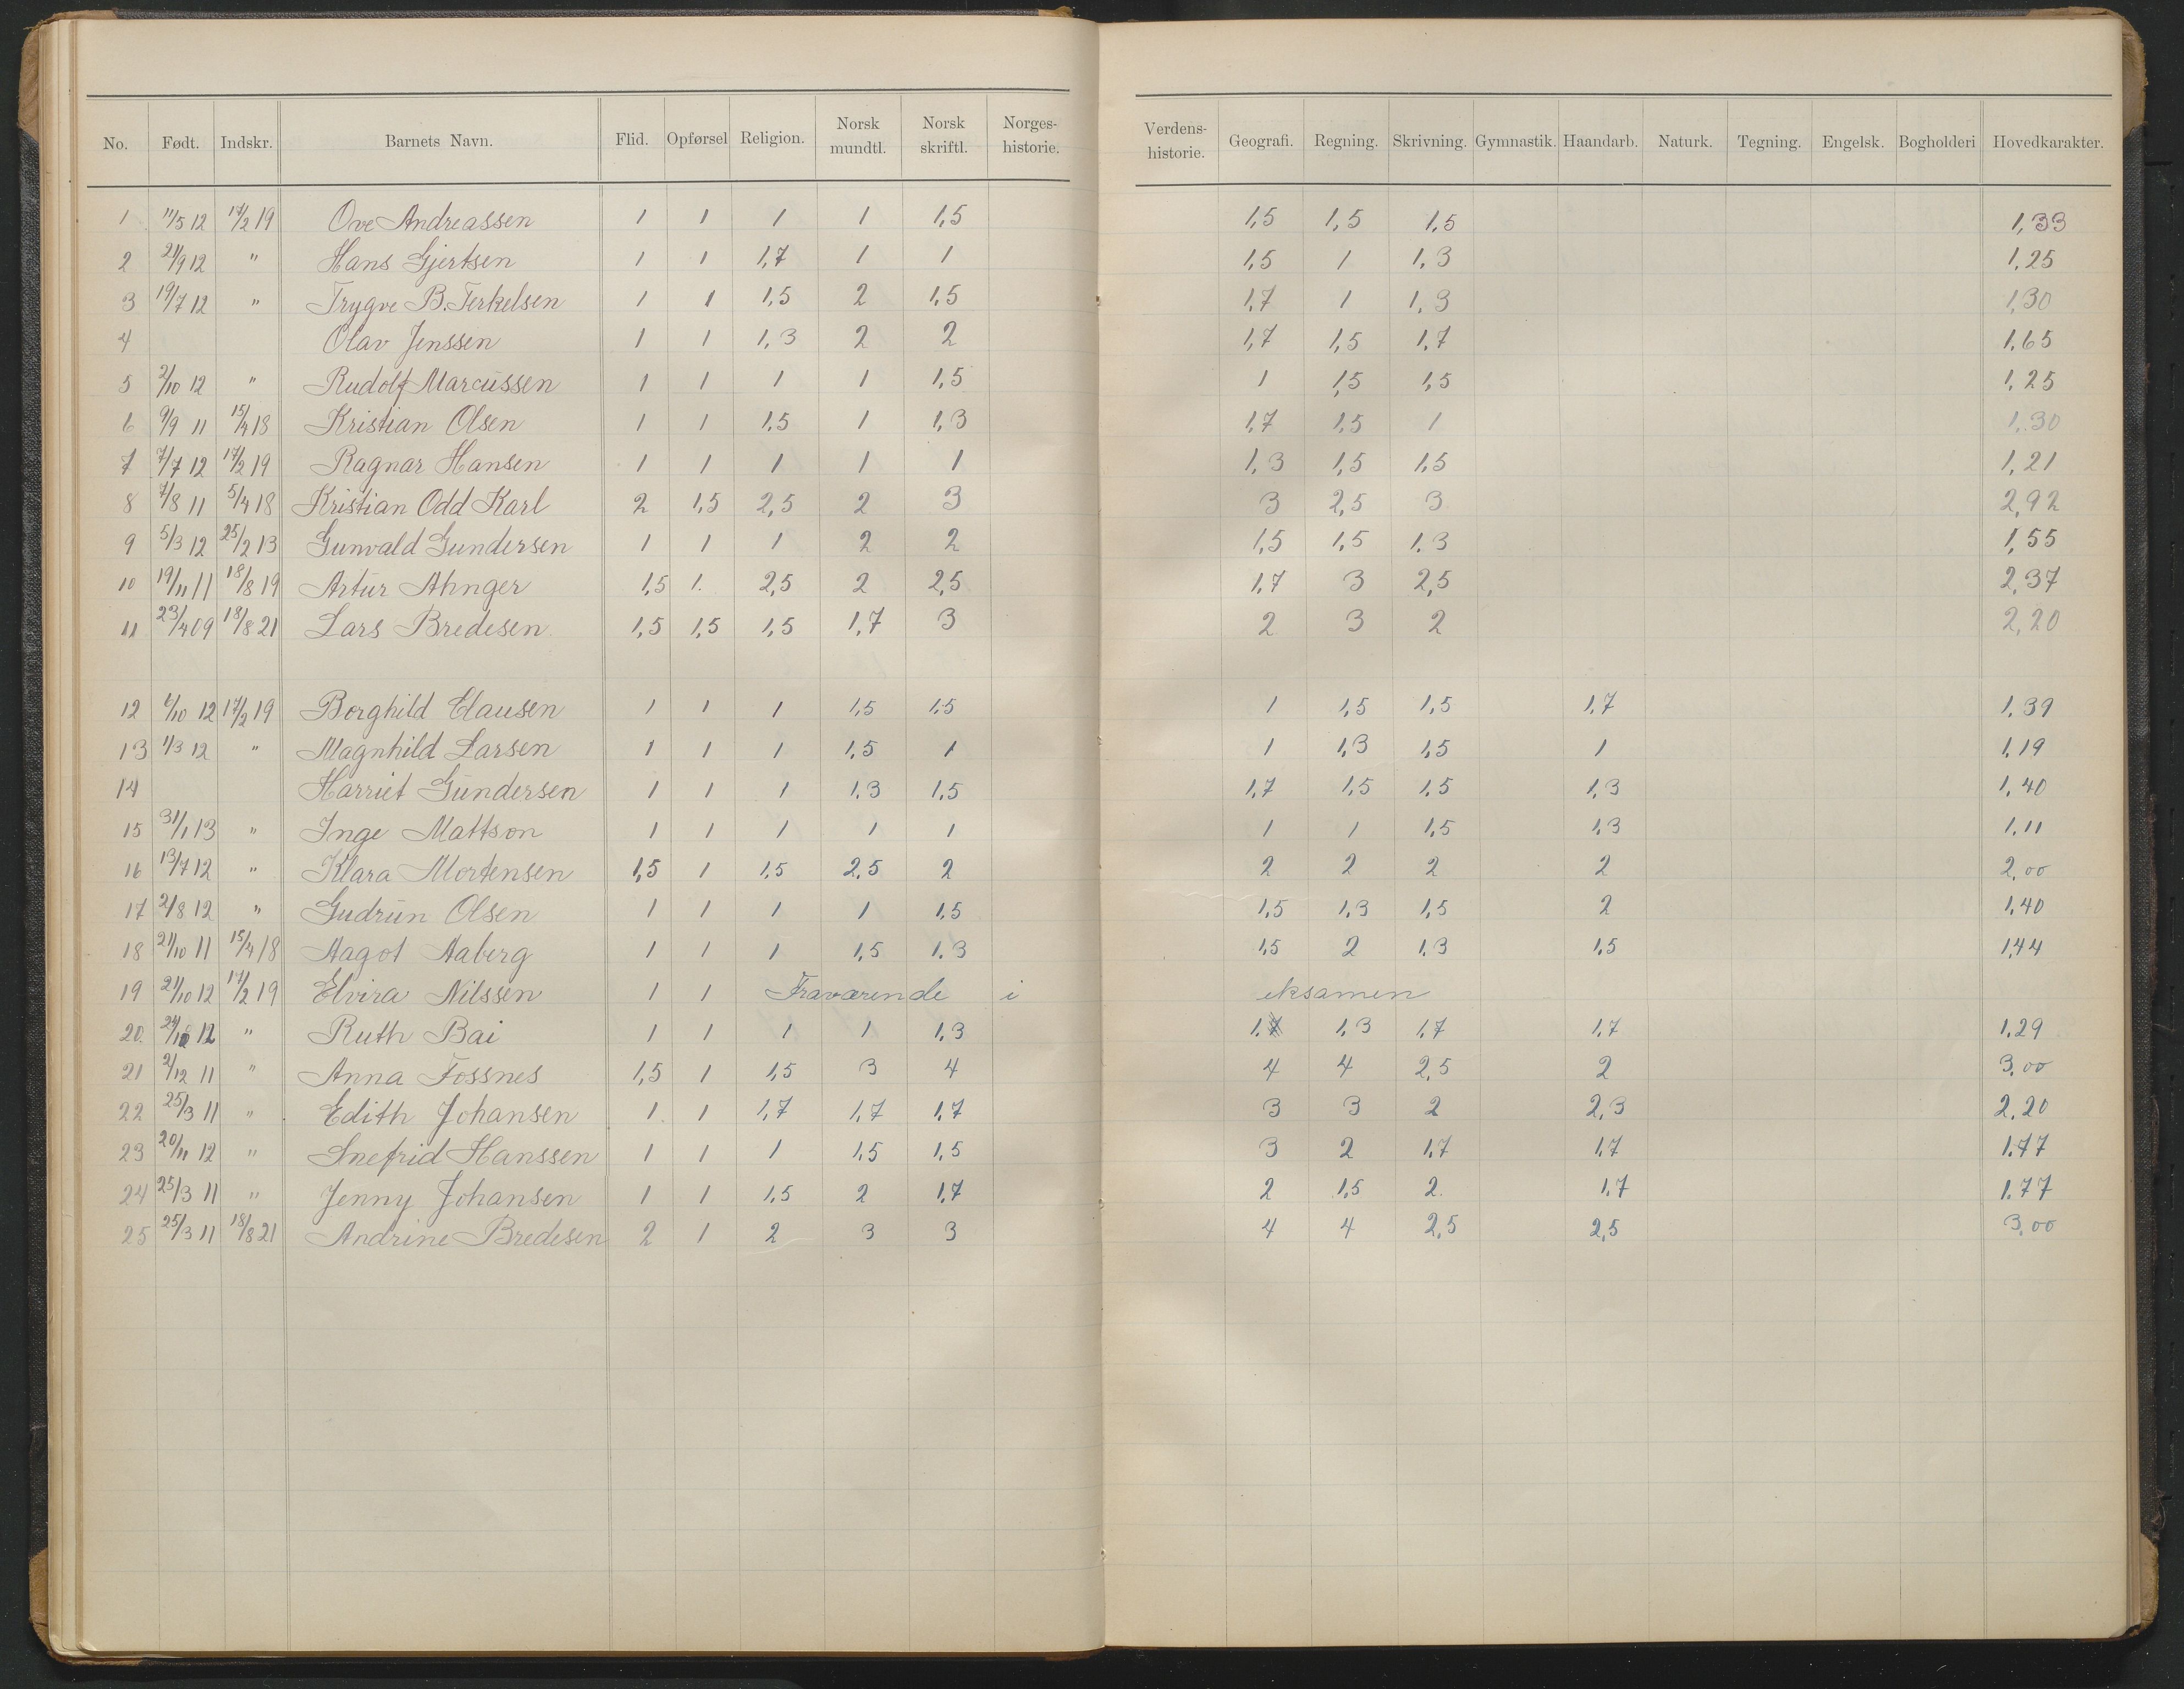 No. Født. Indskr. Barnets Navn. Flid. Opførsel Religion. Norsk mundtl. Norsk skriftl. Norges-historie. Verdens-historie. Geografi. Regning. Skrivning. Gymnastik. Haandarb. Naturk. Tegning. Engelsk. Bogholderi Hovedkarakter.
1 11/5 12 17/2 19 Ove Andreassen 1 1 1 1 1,5 1,5 1,5 1,5 1,33
2 21/9 12 " Hans Gjertsen 1 1 1,7 1 1 1,5 1 1,3 1,25
3 19/7 12 " Trygve B. Terkelsen 1 1 1,5 2 1,5 1,7 1 1,3 1,30
4 Olav Jenssen 1 1 1,3 2 2 1,7 1,5 1,7 1,65
5 2/10 12 " Rudolf Marcussen 1 1 1 1 1,5 1 1,5 1,5 1,25
6 9/9 11 15/4 18 Kristian Olsen 1 1 1,5 1 1,3 1,7 1,5 1 1,30
7 7/7 12 17/2 19 Ragnar Hansen 1 1 1 1 1 1,3 1,5 1,5 1,21
8 7/8 11 5/4 18 Kristian Odd Karl 2 1,5 2,5 2 3 3 2,5 3 2,92
9 5/3 12 25/2 13 Gunvald Gundersen 1 1 1 2 2 1,5 1,5 1,3 1,55
10 19/11 11 18/8 19 Artur Ahnger 1,5 1. 2,5 2 2,5 1,7 3 2,5 2,37
11 23/4 09 18/8 21 Lars Bredesen 1,5 1,5 1,5 1,7 3 2 3 2 2,20
12 6/10 12 17/2 19 Borghild Clausen 1 1 1 1,5 1,5 1 1,5 1,5 1,7 1,39
13 1/3 12 " Magnhild Larsen 1 1 1 1,5 1 1 1,3 1,5 1 1,19
14 Harriet Gundersen 1 1 1 1,3 1,5 1,7 1,5 1,5 1,3 1,40
15 31/1 13 " Inge Mattson 1 1 1 1 1 1 1 1,5 1,3 1,11
16 13/7 12 " Klara Mortensen 1,5 1 1,5 2,5 2 2 2 2 2 2,00
17 2/8 12 " Gudrun Olsen 1 1 1 1 1,5 1,5 1,3 1,5 2 1,40
18 21/10 11 15/4 18 Aagot Aaberg 1 1 1 1,5 1,3 1,5 2 1,3 1,5 1,44
19 21/10 12 17/2 19 Elvira Nilssen 1 1 Fraværende i eksamen
20. 24/10 12 " Ruth Bai 1 1 1 1 1,3 1,7 1,3 1,7 1,7 1,29
21 2/12 11 " Anna Fossnes 1,5 1 1,5 3 4 4 4 2,5 2 3,00
22 25/3 11 " Edith Johansen 1 1 1,7 1,7 1,7 3 3 2 2,3 2,20
23 20/11 12 " Snefrid Hanssen 1 1 1 1,5 1,5 3 2 1,7 1,7 1,77
24 25/3 11 " Jenny Johansen 1 1 1,5 2 1,7 2 1,5 2. 1,7 1,77
25 25/3 11 18/8 21 Andrine Bredesen 2 1 2 3 3 4 4 2,5 2,5 3,00